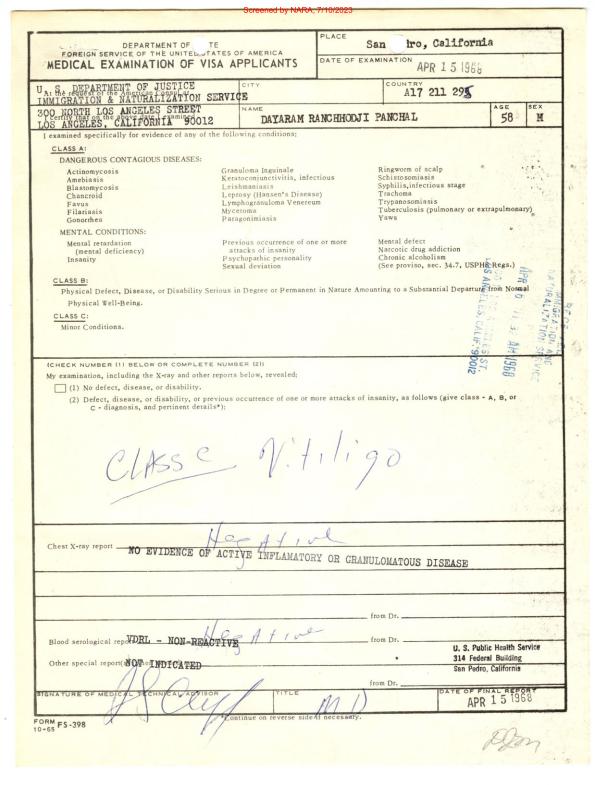 Screened by NARA, 7/10/2023
DEPARTMENT OF TE
FOREIGN SERVICE OF THE UNITED STATES OF AMERICA
MEDICAL EXAMINATION OF VISA APPLICANTS
PLACE
San dro, California
DATE OF EXAMINATION
APR 15 1968
U. S. DEPARTMENT OF JUSTICE
At the request of the American Consul at
IMMIGRATION & NATURALIZATION SERVICE
CITY
COUNTRY
A17 211 295
300 NORTH LOS ANGELES STREET
I certify that on the above date I examined
LOS ANGELES, CALIFORNIA 90012
NAME
DAYARAM RANCHHODJI PANCHAL
AGE
58
SEX
M
I examined specifically for evidence of any of the following conditions:
CLASS A:
DANGEROUS CONTAGIOUS DISEASES:
Actinomycosis
Amebiasis
Blastomycosis
Chancroid
Favus
Filariasis
Gonorrhea
Granuloma Inguinale
Keratoconjunctivitis, infectious
Leishmaniasis
Leprosy (Hansen's Disease)
Lymphogranuloma Venereum
Mycetoma
Paragonimiasis
Ringworm of scalp
Schistosomiasis
Syphilis, infectious stage
Trachoma
Trypanosomiasis
Tuberculosis (pulmonary or extrapulmonary)
Yaws
MENTAL CONDITIONS:
Mental retardation
(mental deficiency)
Insanity
Previous occurrence of one or more
attacks of insanity
Psychopathic personality
Sexual deviation
Mental defect
Narcotic drug addiction
Chronic alcoholism
(See proviso, sec. 34.7, USPHS Regs.)
CLASS B:
Physical Defect, Disease, or Disability Serious in Degree or Permanent in Nature Amounting to a Substantial Departure from Normal
Physical Well-Being.
CLASS C:
Minor Conditions.
NATURALIZATION SERVICE
LOS ANGELES, CALIF. 90012
AM 1968
(CHECK NUMBER (1) BELOW OR COMPLETE NUMBER (2))
My examination, including the X-ray and other reports below, revealed;
(1) No defect, disease, or disability.
(2) Defect, disease, or disability, or previous occurrence of one or more attacks of insanity, as follows (give class - A, B, or
C - diagnosis, and pertinent details*):
CLASS C Vitiligo
Negative
Chest X-ray report NO EVIDENCE OF ACTIVE INFLAMATORY OR GRANULOMATOUS DISEASE
from Dr.
Negative
Blood serological report VDRL - NON-REACTIVE
from Dr.
Other special report(s) NOT INDICATED
from Dr.
U. S. Public Health Service
314 Federal Building
San Pedro, California
SIGNATURE OF MEDICAL TECHNICAL ADVISOR
TITLE
MD
DATE OF FINAL REPORT
APR 15 1968
Continue on reverse side if necessary.
FORM FS-398
10-65